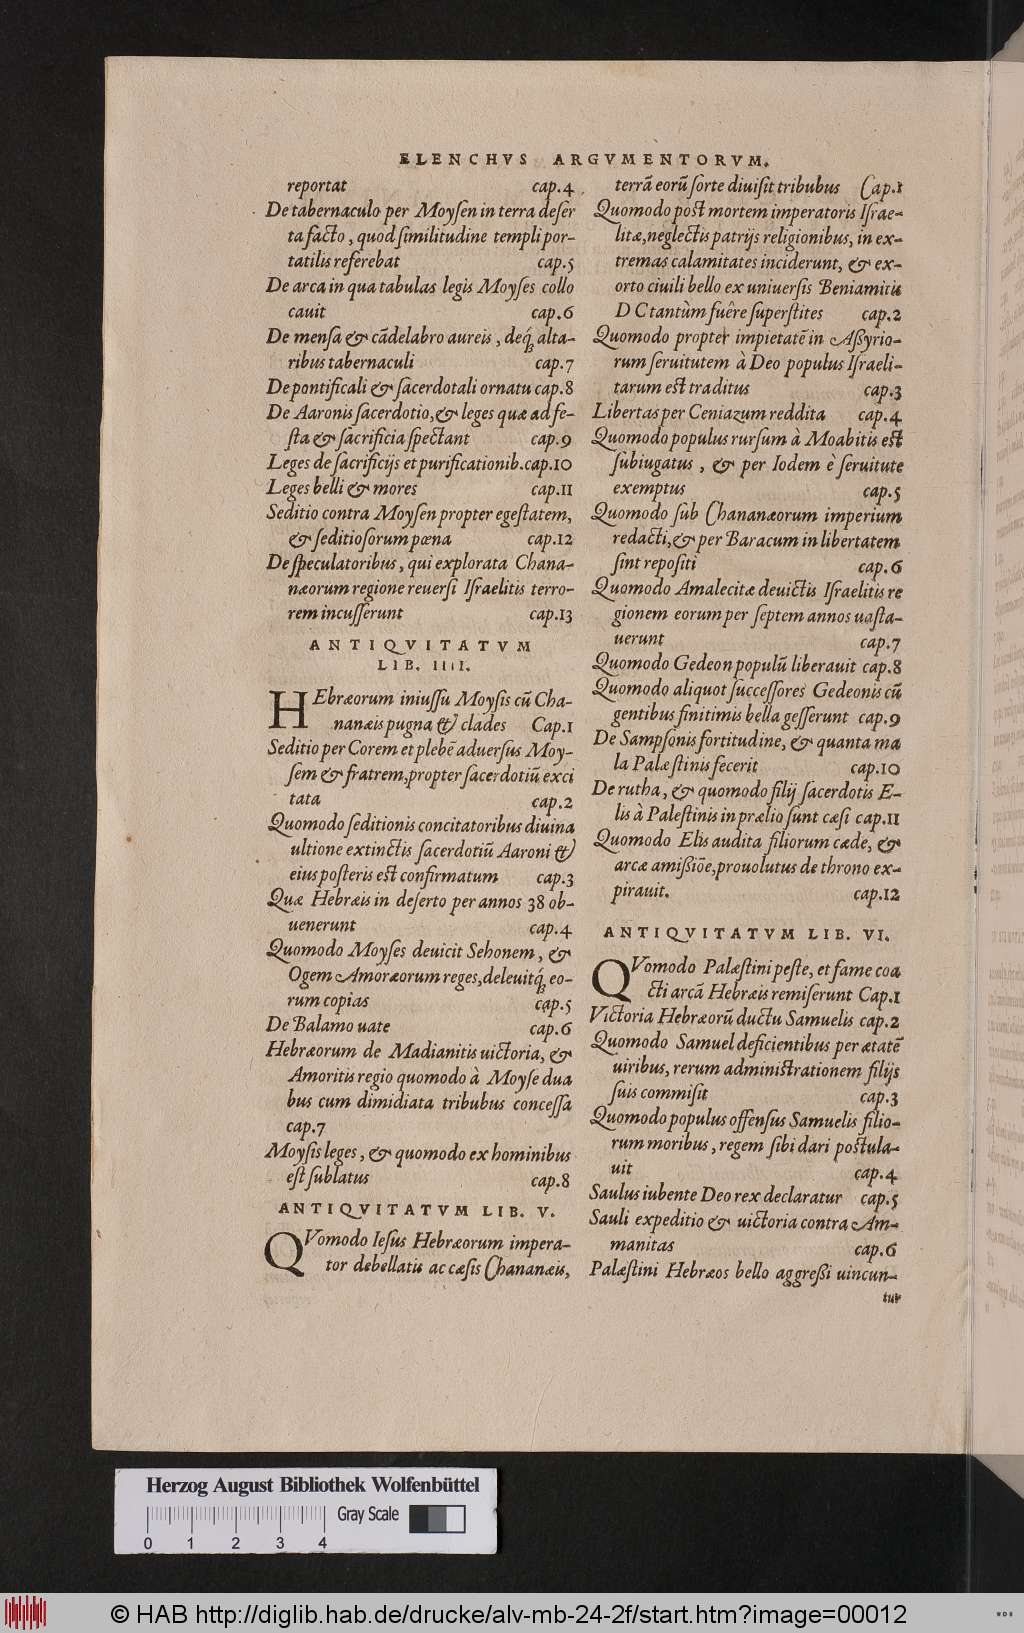 ELENCHVS ARGVMENTORVM.
reportat cap.4
De tabernaculo per Moyſen in terra deſer
ta facto, quod ſimilitudine templi por-
tatilis referebat cap.5
De arca in qua tabulas legis Moyſes collo
cauit cap.6
De menſa & cādelabro aureis, deq́; alta-
ribus tabernaculi cap.7
De pontificali & ſacerdotali ornatu cap.8
De Aaronis ſacerdotio, & leges quæ ad fe-
ſta & ſacrificia ſpectant cap.9
Leges de ſacrificijs et purificationib. cap.10
Leges belli & mores cap.11
Seditio contra Moyſen propter egeſtatem,
& ſeditioſorum pœna cap.12
De ſpeculatoribus, qui explorata Chana-
næorum regione reuerſi Iſraelitis terro-
rem incuſſerunt cap.13
ANTIQVITATVM
LIB. IIII.
HEbræorum iniuſſu Moyſis cū Cha-
nanæis pugna & clades Cap.1
Seditio per Corem et plebē aduerſus Moy-
ſem & fratrem, propter ſacerdotiū exci
tata cap.2
Quomodo ſeditionis concitatoribus diuina
ultione extinctis ſacerdotiū Aaroni &
eius poſteris eſt confirmatum cap.3
Quæ Hebræis in deſerto per annos 38 ob-
uenerunt cap.4
Quomodo Moyſes deuicit Sehonem, &
Ogem Amoræorum reges, deleuitq́; eo-
rum copias cap.5
De Balamo uate cap.6
Hebræorum de Madianitis uictoria, &
Amoritis regio quomodo à Moyſe dua
bus cum dimidiata tribubus conceſſa
cap.7
Moyſis leges, & quomodo ex hominibus
eſt ſublatus cap.8
ANTIQVITATVM LIB. V.
QVomodo Ieſus Hebræorum impera-
tor debellatis ac cæſis Chananæis,
terrā eorū ſorte diuiſit tribubus Cap.1
Quomodo poſt mortem imperatoris Iſrae-
litæ, neglectis patrijs religionibus, in ex-
tremas calamitates inciderunt, & ex-
orto ciuili bello ex uniuerſis Beniamitis
DC tantùm fuêre ſuperſtites cap.2
Quomodo propter impietatē in Aſſyrio-
rum ſeruitutem à Deo populus Iſraeli-
tarum eſt traditus cap.3
Libertas per Ceniazum reddita cap.4
Quomodo populus rurſum à Moabitis eſt
ſubiugatus, & per Iodem è ſeruitute
exemptus cap.5
Quomodo ſub Chananæorum imperium
redacti, & per Baracum in libertatem
ſint repoſiti cap.6
Quomodo Amalecitæ deuictis Iſraelitis re
gionem eorum per ſeptem annos uaſta-
uerunt cap.7
Quomodo Gedeon populū liberauit cap.8
Quomodo aliquot ſucceſſores Gedeonis cū
gentibus finitimis bella geſſerunt cap.9
De Sampſonis fortitudine, & quanta ma
la Palæſtinis fecerit cap.10
De rutha, & quomodo filij ſacerdotis E-
lis à Paleſtinis in prælio ſunt cæſi cap.11
Quomodo Elis audita filiorum cæde, &
arcæ amiſſiōe, prouolutus de throno ex-
pirauit. cap.12
ANTIQVITATVM LIB. VI.
QVomodo Palæſtini peſte, et fame coa
cti arcā Hebræis remiſerunt Cap.1
Victoria Hebræorū ductu Samuelis cap.2
Quomodo Samuel deficientibus per ætatē
uiribus, rerum adminiſtrationem filijs
ſuis commiſit cap.3
Quomodo populus offenſus Samuelis filio-
rum moribus, regem ſibi dari poſtula-
uit cap.4
Saulus iubente Deo rex declaratur cap.5
Sauli expeditio & uictoria contra Am-
manitas cap.6
Palæſtini Hebræos bello aggreſſi uincun-
tur
Herzog August Bibliothek Wolfenbüttel
Gray Scale
0 1 2 3 4
© HAB http://diglib.hab.de/drucke/alv-mb-24-2f/start.htm?image=00012